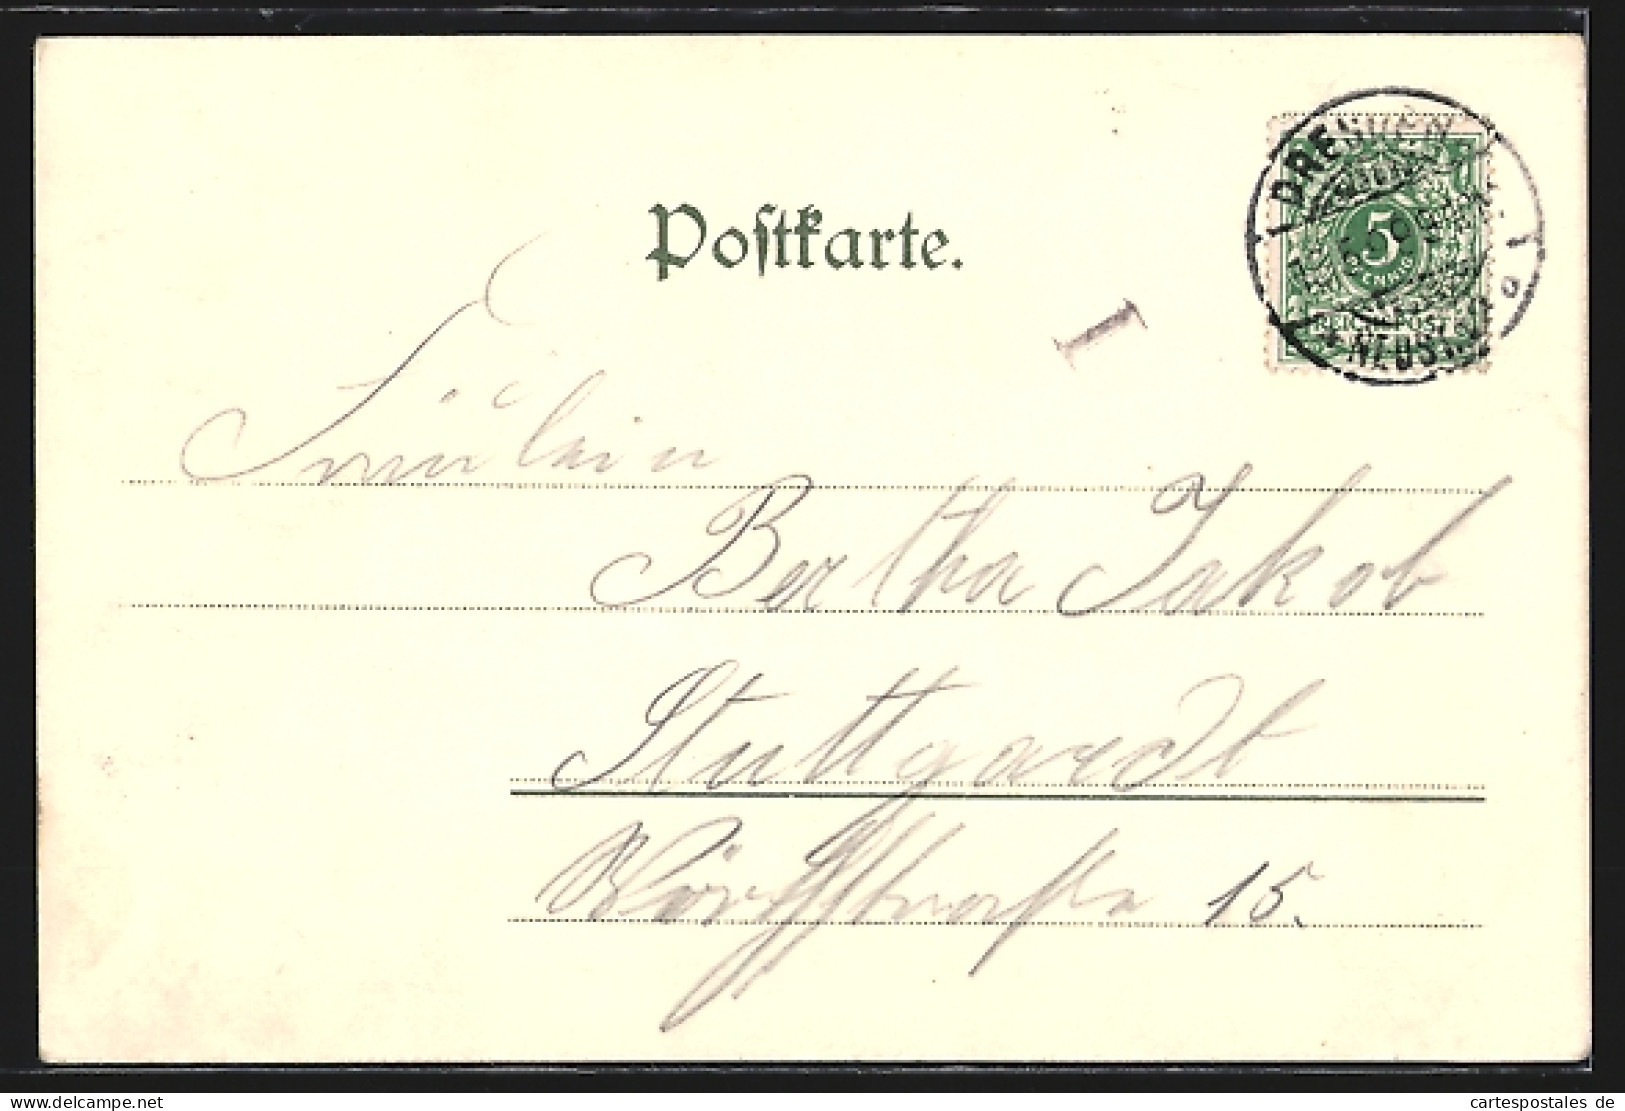 Postkarte.
DRESDEN
5
PFENNIG
REICHSPOST
NEUST.
I
Fräulein
Bertha Jakob
Stuttgardt
15.
www.delcampe.net
cartespostales de